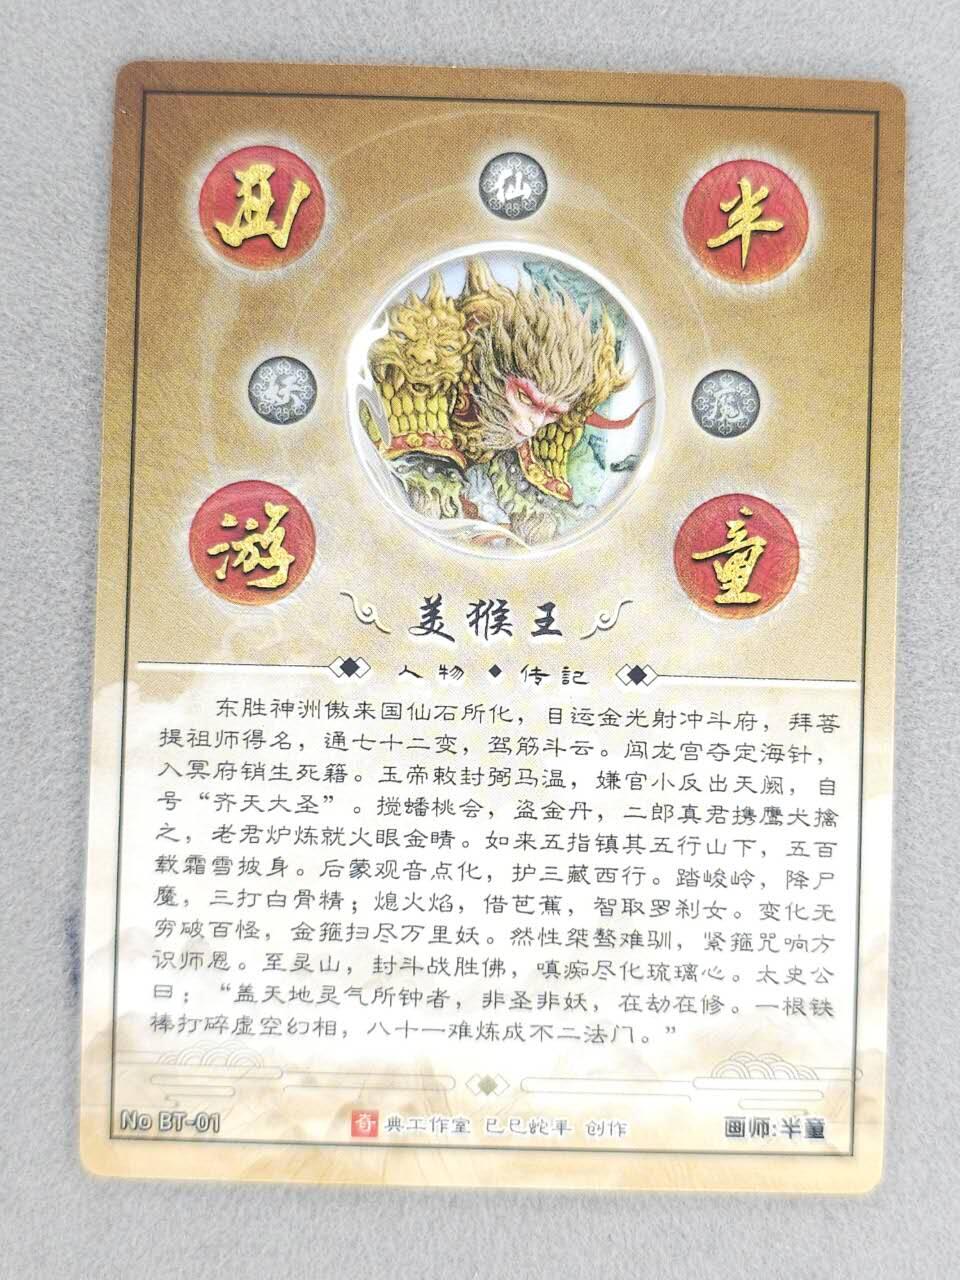 西
仙
半
妖
魔
游
童
美猴王
人物◆传記
东胜神洲傲来国仙石所化，目运金光射冲斗府，拜菩
提祖师得名，通七十二变，驾筋斗云。闯龙宫夺定海针，
入冥府销生死籍。玉帝敕封弼马温，嫌官小反出天阙，自
号“齐天大圣”。搅蟠桃会，盗金丹，二郎真君携鹰犬擒
之，老君炉炼就火眼金睛。如来五指镇其五行山下，五百
载霜雪披身。后蒙观音点化，护三藏西行。踏峻岭，降尸
魔，三打白骨精；熄火焰，借芭蕉，智取罗刹女。变化无
穷破百怪，金箍扫尽万里妖。然性桀骜难驯，紧箍咒响方
识师恩。至灵山，封斗战胜佛，嗔痴尽化琉璃心。太史公
曰；“盖天地灵气所钟者，非圣非妖，在劫在修。一根铁
棒打碎虚空幻相，八十一难炼成不二法门。”
No BT-01
奇典工作室 已巳蛇年 创作
画师:半童